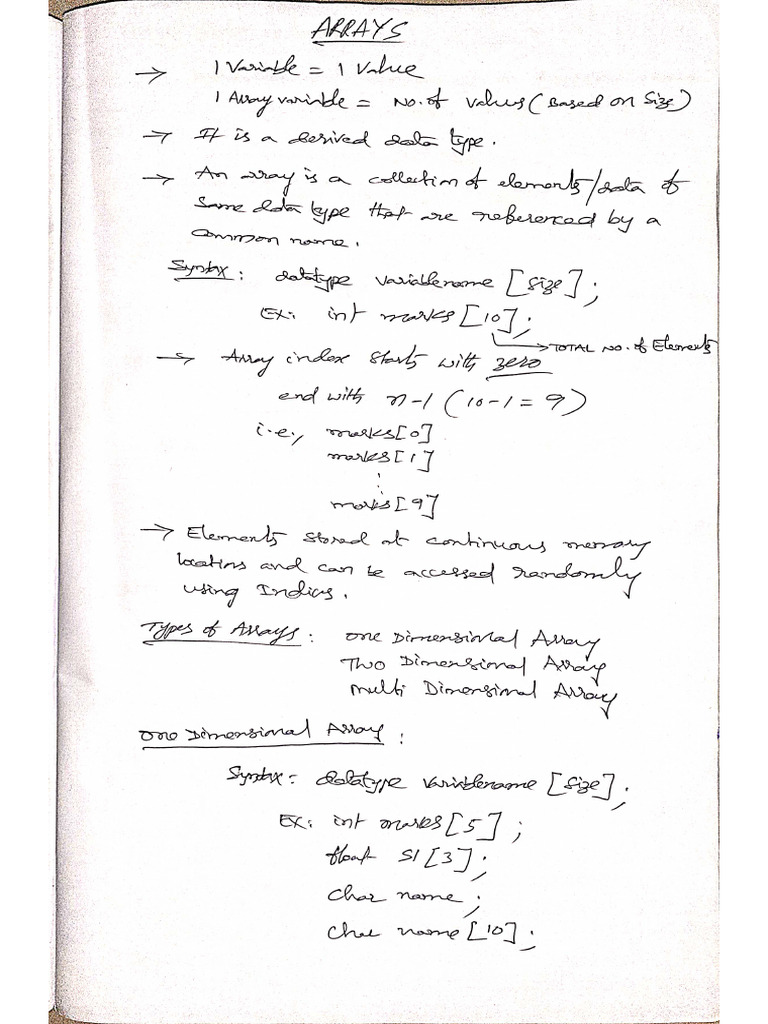 ARRAYS
→ 1 Variable = 1 Value
1 Array variable = No. of values (Based on Size)
→ It is a derived data type.
→ An array is a collection of elements/data of
same data type that are referenced by a
common name.
Syntax: datatype variablename [size];
Ex: int marks [10];
→ TOTAL No. of Elements
→ Array index starts with zero
end with n-1 (10-1 = 9)
i.e., marks[0]
marks[1]
⋮
marks[9]
→ Elements stored at continuous memory
locations and can be accessed randomly
using Indices.
Types of Arrays: One Dimensional Array
Two Dimensional Array
Multi Dimensional Array
One Dimensional Array:
Syntax: datatype variablename [size];
Ex: int marks[5];
float SI[3];
char name;
char name[10];